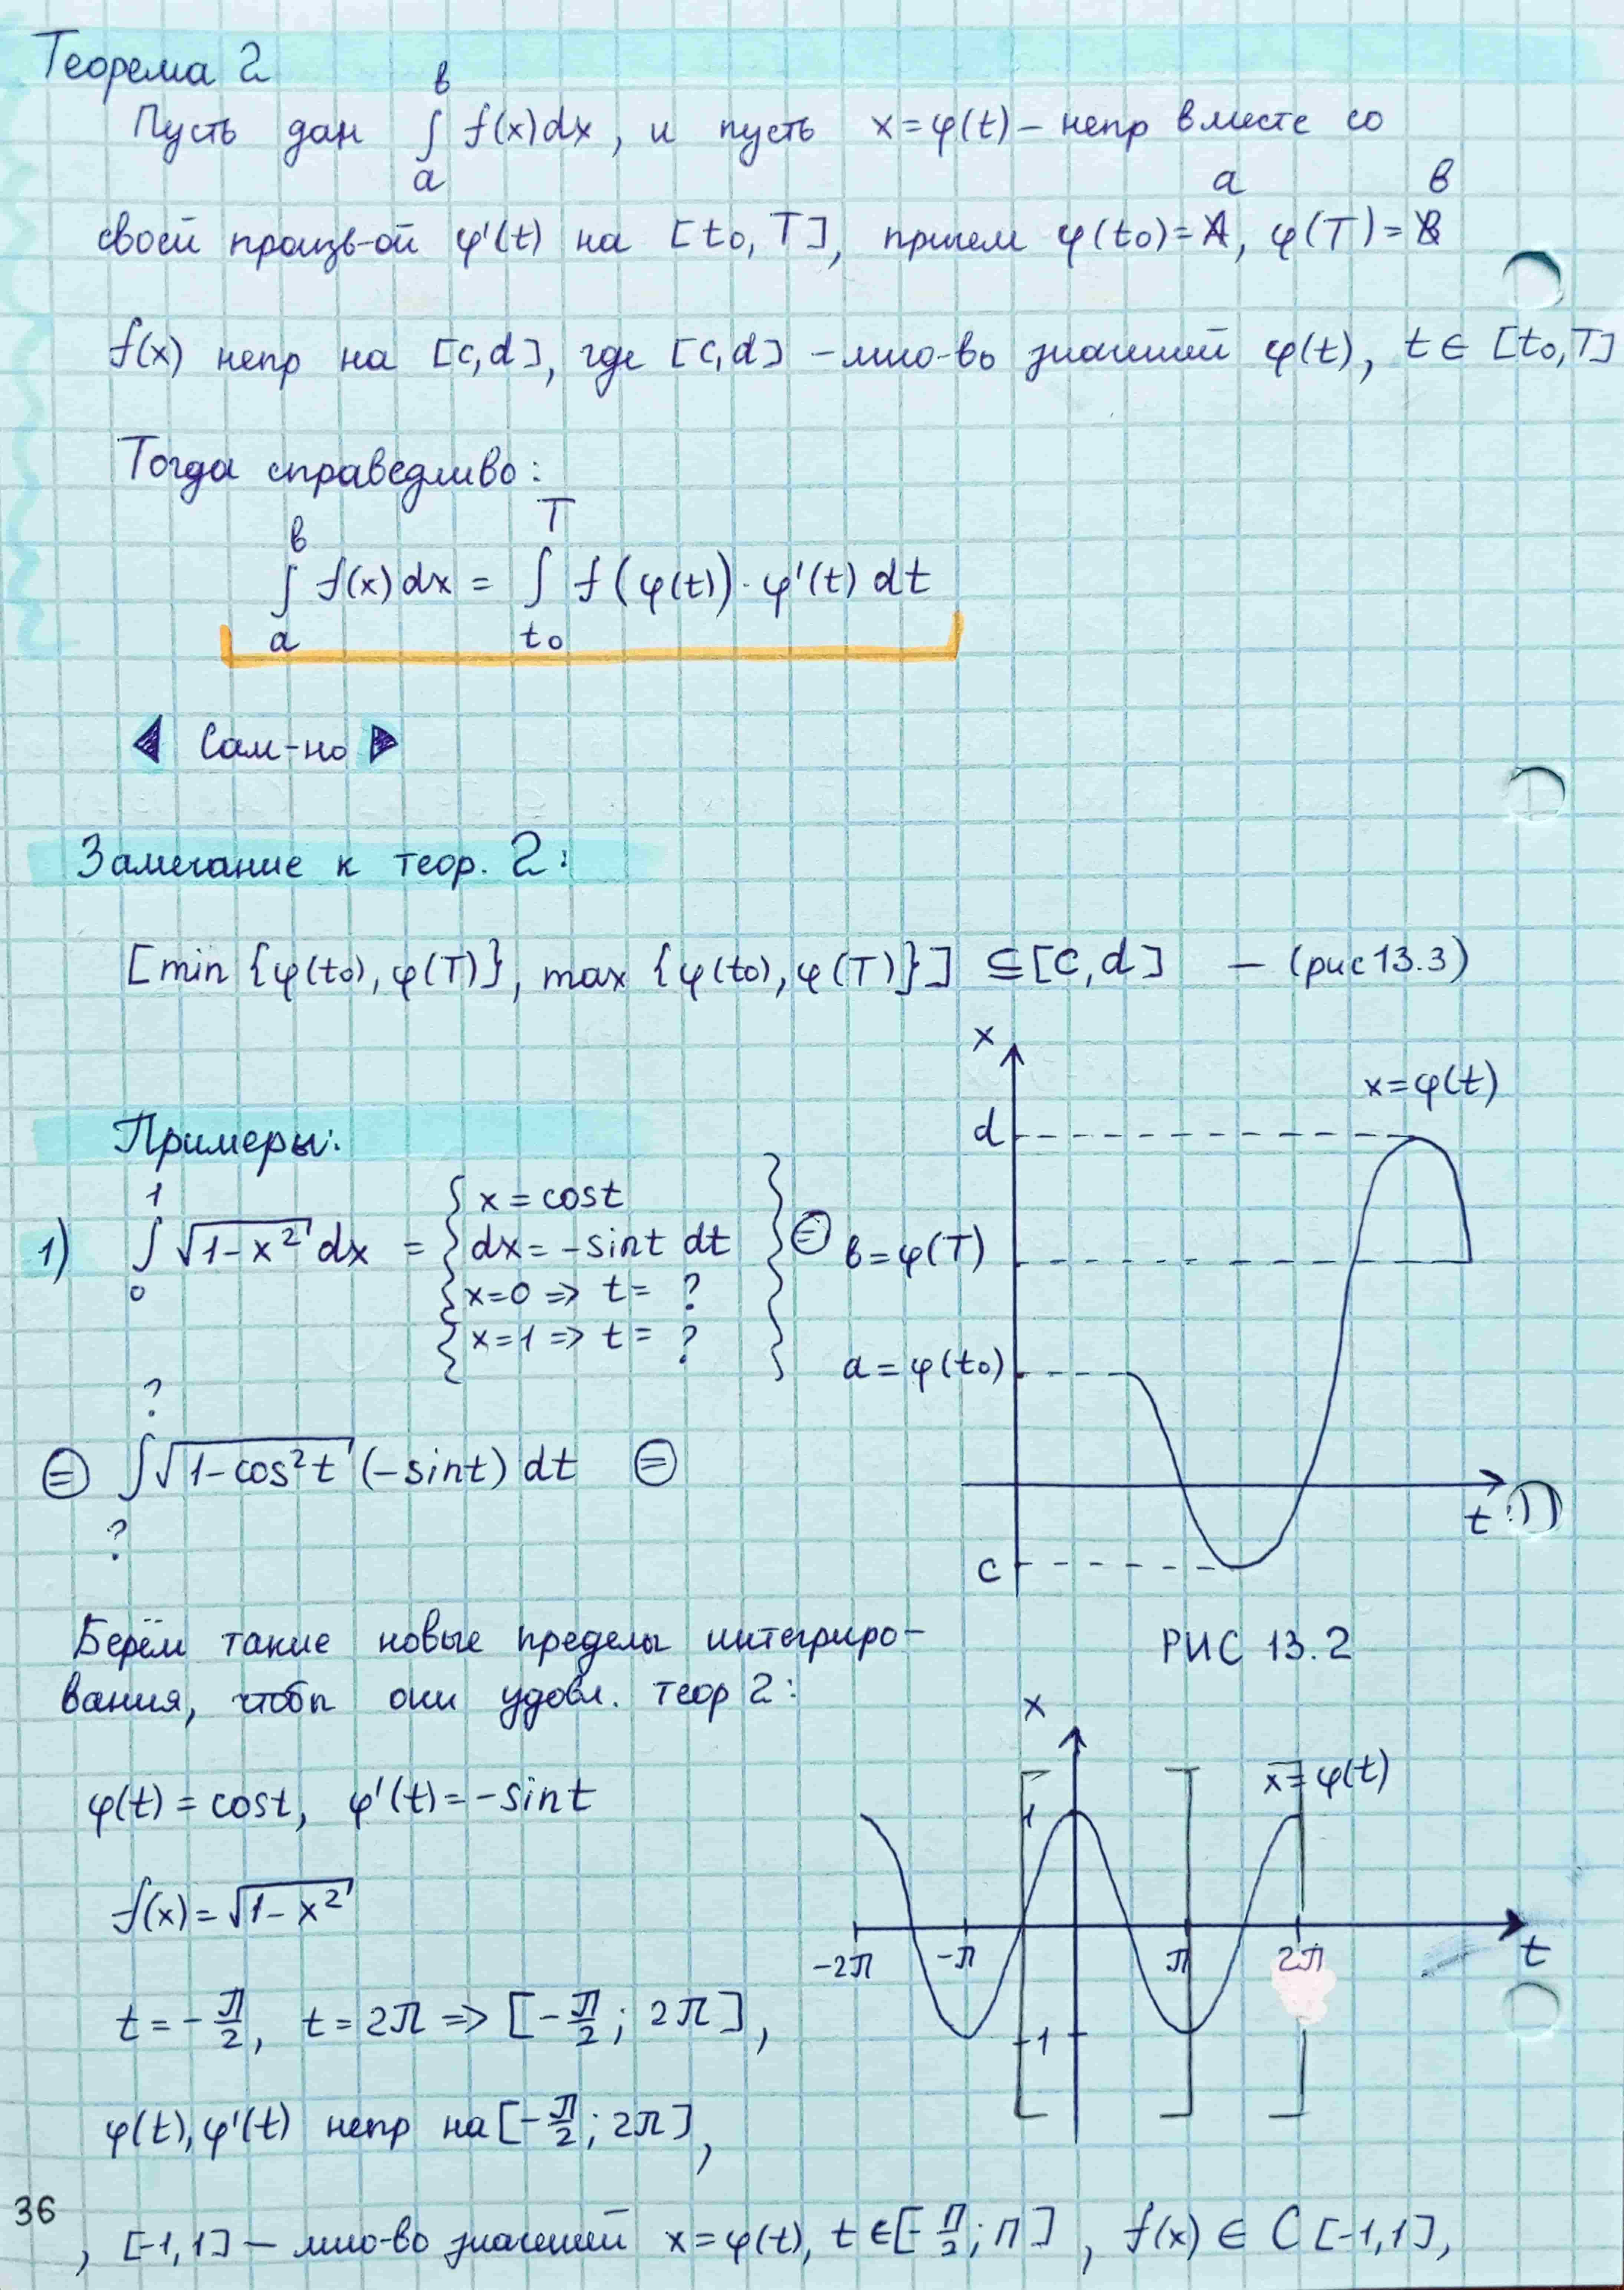 Теорема 2
Пусть дан ∫ₐᵇ f(x)dx, и пусть x=φ(t) – непр вместе со
a в
своей произв-ой φ'(t) на [t₀,T], причем φ(t₀)=A, φ(T)=B
f(x) непр на [c,d], где [c,d] – мно-во значений φ(t), t∈[t₀,T]
Тогда справедливо:
в T
∫ f(x)dx = ∫ f(φ(t))·φ'(t) dt
a t₀
◀ Сам-но ▶
Замечание к теор. 2:
[min {φ(t₀), φ(T)}, max {φ(t₀), φ(T)}] ⊆ [c,d] – (рис 13.3)
Примеры:
1
1) ∫ √1-x² dx = { x = cost
0
dx = -sint dt
x=0 => t= ?
x=1 => t= ? } ⊜
?
⊜ ∫ √1-cos²t (-sint) dt ⊜
?
x
x=φ(t)
d
в=φ(T)
a=φ(t₀)
c
t :))
РИС 13.2
Берём такие новые пределы интегриро-
вания, чтобы они удовл. теор 2:
φ(t) = cost, φ'(t) = -sint
f(x) = √1-x²
t = -π/2, t = 2π => [-π/2; 2π],
φ(t), φ'(t) непр на [-π/2; 2π],
x
x=φ(t)
1
-2π -π π 2π
t
-1
36
, [-1,1] – мно-во значений x=φ(t), t∈[-π/2; π], f(x) ∈ C[-1,1],